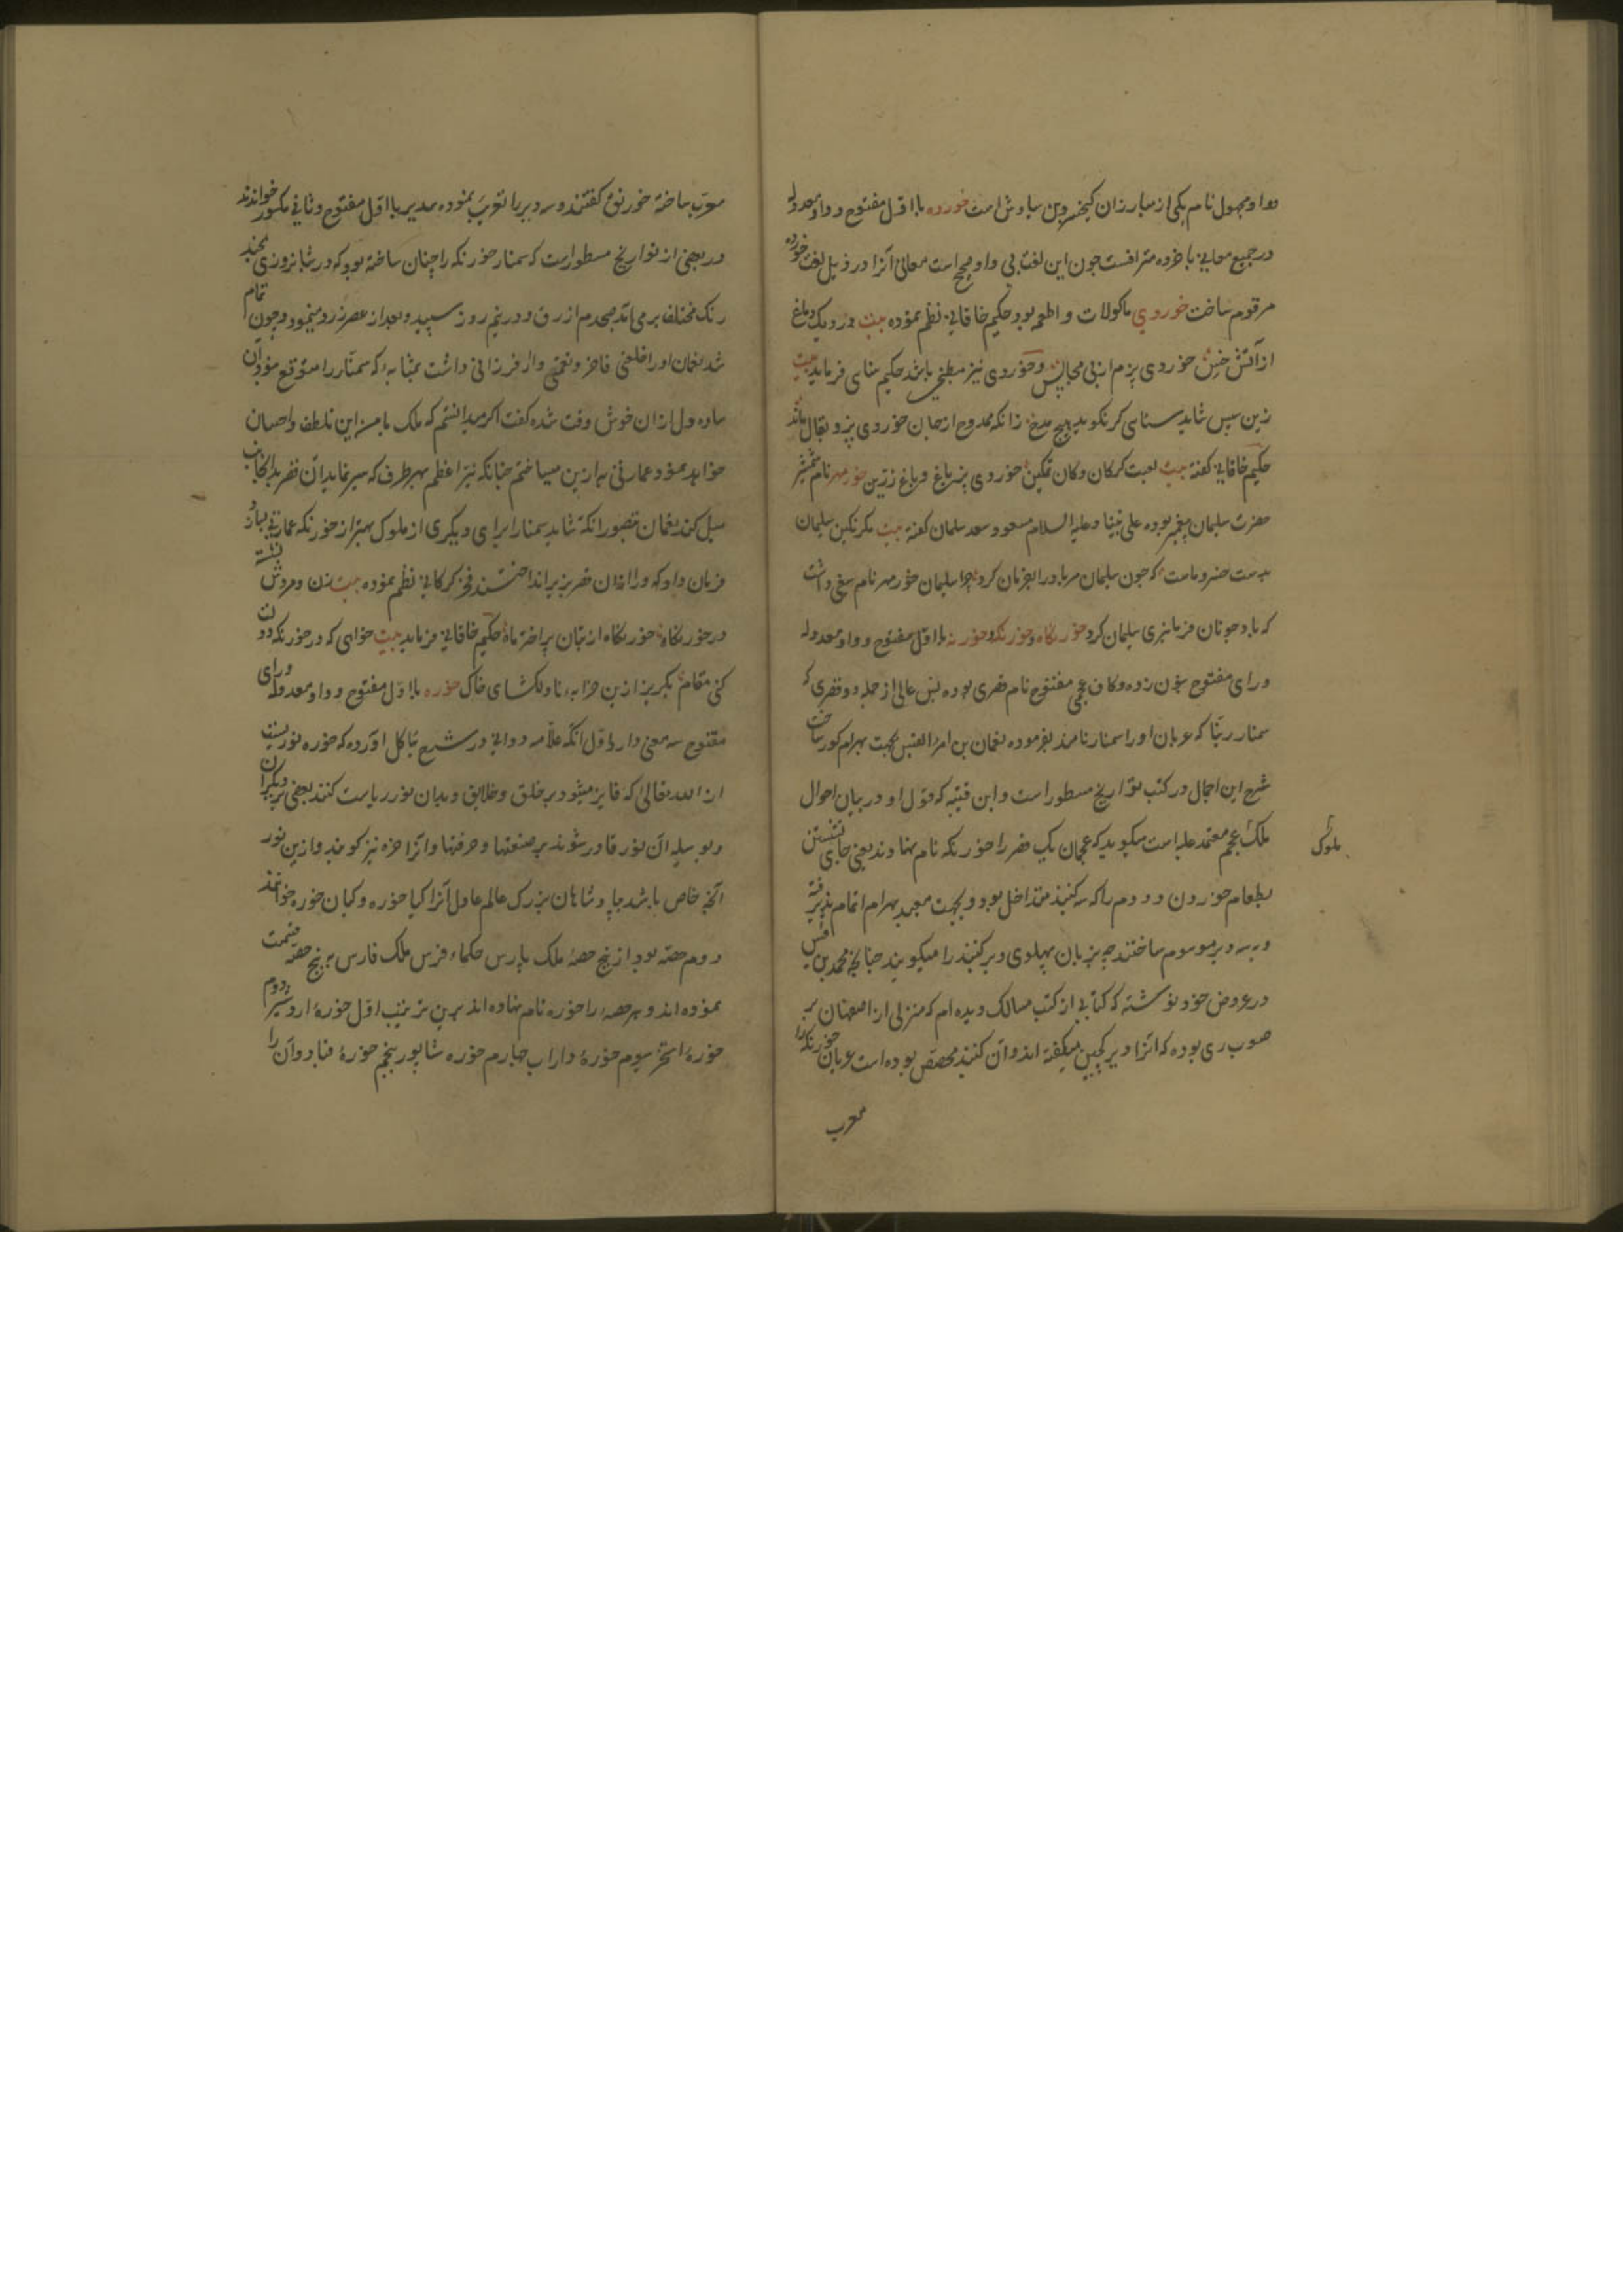 و واو مجهول نام یکی از مبارزان کیخسرو بن سیاوش است خورده با اول مفتوح و واو معدوله
در جمیع معانی با خرده مترادفست چون این لغت بی واو صحیح است معانی آنرا در ذیل لغت خورده
مرقوم ساخت خوردی ماکولات و اطعمه بود حکیم خاقانی نظم نموده بیت دماغ
از آتش خوردی پزم از بی مجالس و خوردی نیز مطبخی باشد حکیم سنای فرماید بیت
زین سپس شاید سنای کر نکوید هیچ مدح زانکه ممدوح از جهان خوردی پز و بقال ماند
حکیم خاقانی کفته بیت لعبت کرمکان وکان تمکین خوردی پز باغ و باغ زرین خورمهر نام شمشیر
حضرت سلیمان پیغمبر بوده علی نبینا و علیه السلام مسعود سعد سلمان کفته بیت مکر نکین سلیمان
بدست خسرو ماست که چون سلیمان مر باد را بفرمان کرد چرا سلیمان خورمهر نام تیغی داشت
که باد چونان فرمانبری سلیمان کرد خورنکاه و خورنکه و خورنه با اول مفتوح و واو معدوله
و رای مفتوح بنون زده وکاف عجمی مفتوح نام قصری بوده بس عالی از جمله دو قصری که
سمنار ربنا که عربان او را سمنار نامند بفرموده نعمان بن امرء القیس بجهت بهرام کور ساخت
شرح این اجمال در کتب تواریخ مسطور است و ابن قتیبه که قول او در بیان احوال
ملک عجم معتمد علیه است میکوید که عجمان یک قصر را خورنکه نام نهادند یعنی جای نشستن
ملوک
بطعام خوردن و دوم را که سه کنبد متداخل بود و بجهت معبد بهرام اتمام پذیرفته
و به سه دیر موسوم ساختند چه بزبان پهلوی دیر کنبد را میکویند چنانچه محمد بن قیس
در عروض خود نوشته که کتابی از کتب مسالک دیده ام که منزلی از اصفهان بر
صوب ری بوده که آنرا دیر کچین میکفته اند و آن کنبد مجصص بوده است عربان خورنکه را
معرب
معرب ساخته خورنق کفتند و سه دیر را تعریب نموده سدیر با اول مفتوح و ثانی مکسور خواندند
و در بعضی از تواریخ مسطور است که سمنار خورنکه را چنان ساخته بود که در شبانروزی بچند
رنک مختلف برمی آمد صبحدم ازرق و در نیم روز سپید و بعد از عصر زرد مینمود و چون تمام
شد نعمان او را خلعتی فاخر و نعمتی وافر ارزانی داشت بمثابه که سمنار را متوقع نبود آن
ساده دل از آن خوش وقت شده کفت اکر میدانستم که ملک با من این تلطف و احسان
خواهد نمود عمارتی به ازین میساختم چنانکه نیر اعظم بهر طرف که سیر نماید آن قصر بدانجانب
میل کند نعمان بتصور آنکه شاید سمنار برای دیکری از ملوک بهتر از خورنکه عمارتی بسازد
فرمان داد که و را از آن قصر بزیر انداختند فخر کرکانی نظم نموده بیت زن و مردش نشسته
در خورنکاه خورنکاه از بتان پر اختر ماه حکیم خاقانی فرماید بیت خواهی که در خورنکه دولت
کنی مقام بکریز ازین خرابه نادلکشای خاک خوره با اول مفتوح و واو معدوله و رای
مفتوح سه معنی دارد اول آنکه علامه دوانی در شرح هیاکل آورده که خوره نوریست
از الله تعالی که فایز میشود بر خلق و خلایق و بدان نور ریاست کنند بعضی بر دیکران
و بوسیله آن نور قادر شوند بر صنعتها و حرفتها و آنرا خره نیز کویند و ازین نور
آنچه خاص باشد بپادشاهان بزرک عالم عادل آنرا کیا خوره و کیان خوره خوانند
دوم حصه بود از پنج حصهٔ ملک پارس حکماء فرس ملک فارس به پنج حصه قسمت
نموده اند و هر حصه را خوره نام نهاده اند برین ترتیب اول خورهٔ اردشیر دوم
خورهٔ اصطخر سیوم خورهٔ داراب چهارم خوره شاپور پنجم خورهٔ قباد و آن را